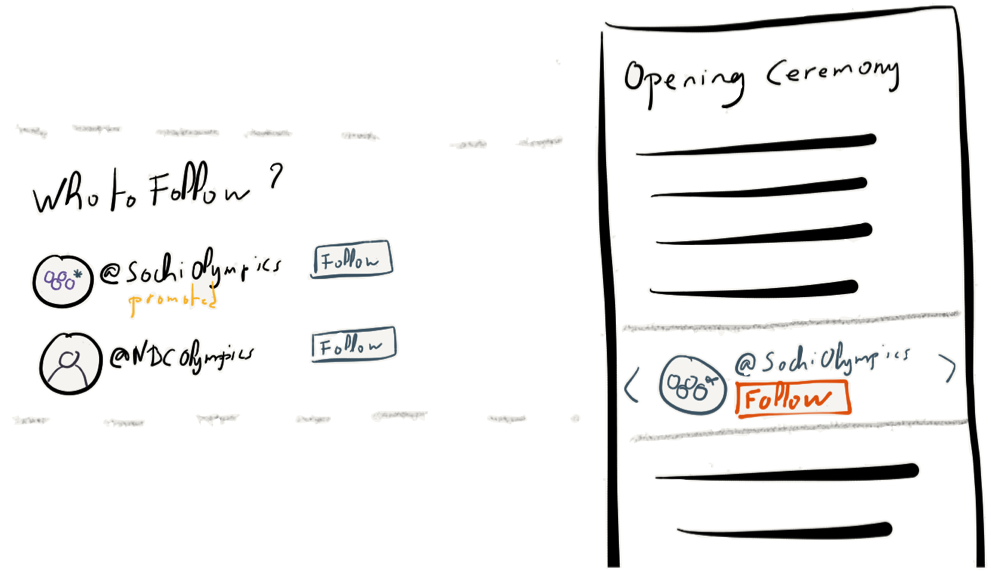 Who to Follow ?
@SochiOlympics
Follow
promoted
@NDCOlympics
Follow
Opening Ceremony
< @SochiOlympics >
Follow